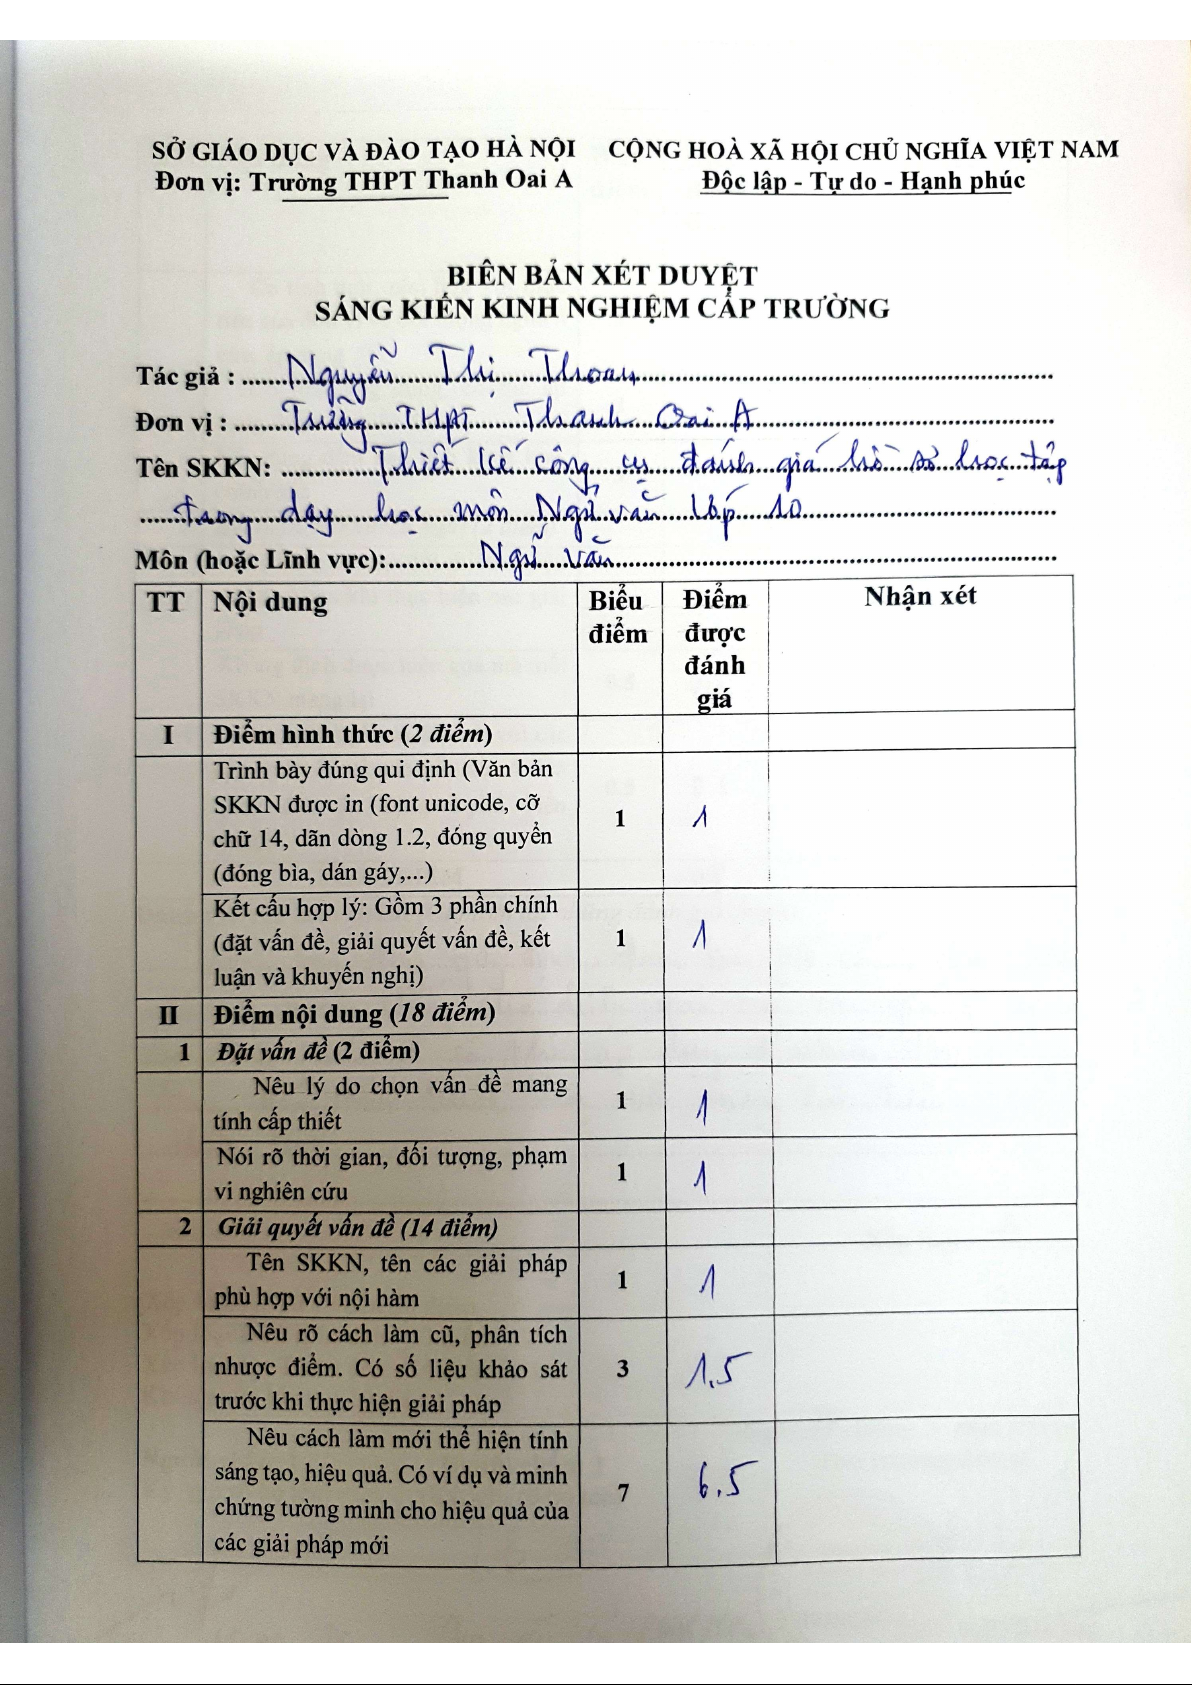 SỞ GIÁO DỤC VÀ ĐÀO TẠO HÀ NỘI
Đơn vị: Trường THPT Thanh Oai A
CỘNG HOÀ XÃ HỘI CHỦ NGHĨA VIỆT NAM
Độc lập - Tự do - Hạnh phúc
BIÊN BẢN XÉT DUYỆT
SÁNG KIẾN KINH NGHIỆM CẤP TRƯỜNG
Tác giả : Nguyễn Thị Thoan
Đơn vị : Trường THPT Thanh Oai A
Tên SKKN: Thiết kế công cụ đánh giá hồ sơ học tập
trong dạy học môn Ngữ văn lớp 10
Môn (hoặc Lĩnh vực): Ngữ văn
TT Nội dung Biểu điểm Điểm được đánh giá Nhận xét
I Điểm hình thức (2 điểm)
Trình bày đúng qui định (Văn bản
SKKN được in (font unicode, cỡ
chữ 14, dãn dòng 1.2, đóng quyển
(đóng bìa, dán gáy,...)
1 1
Kết cấu hợp lý: Gồm 3 phần chính
(đặt vấn đề, giải quyết vấn đề, kết
luận và khuyến nghị)
1 1
II Điểm nội dung (18 điểm)
1 Đặt vấn đề (2 điểm)
Nêu lý do chọn vấn đề mang
tính cấp thiết
1 1
Nói rõ thời gian, đối tượng, phạm
vi nghiên cứu
1 1
2 Giải quyết vấn đề (14 điểm)
Tên SKKN, tên các giải pháp
phù hợp với nội hàm
1 1
Nêu rõ cách làm cũ, phân tích
nhược điểm. Có số liệu khảo sát
trước khi thực hiện giải pháp
3 1.5
Nêu cách làm mới thể hiện tính
sáng tạo, hiệu quả. Có ví dụ và minh
chứng tường minh cho hiệu quả của
các giải pháp mới
7 6.5